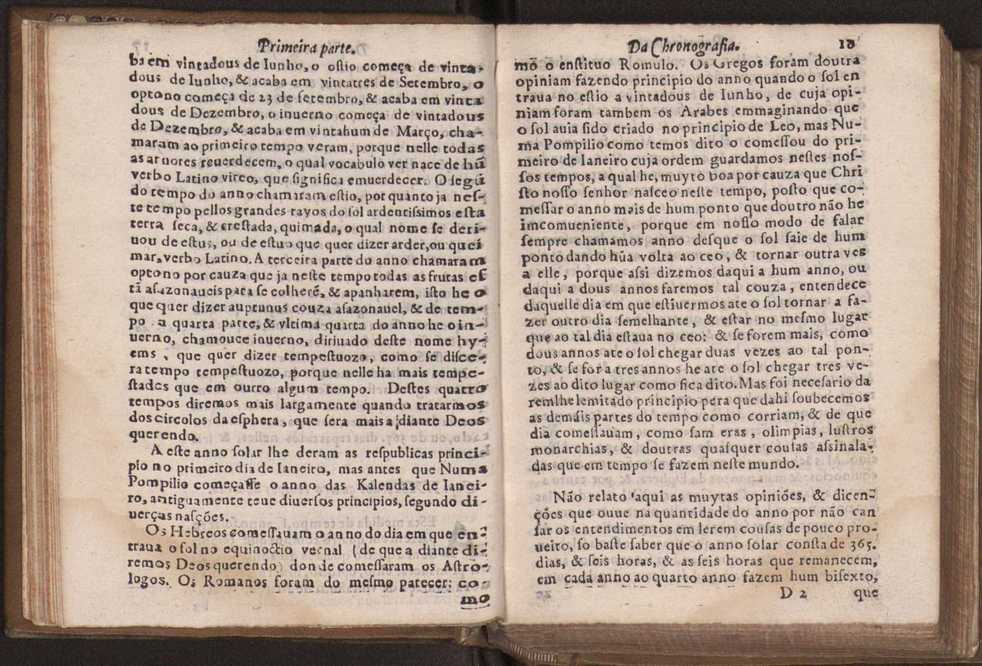 Primeira parte.
ba em vintadous de Iunho, o estio começa de vinta-
dous de Iunho, & acaba em vintatres de Setembro, o
optono começa de 23 de setembro, & acaba em vinta
dous de Dezembro, o inuerno começa de vintadous
de Dezembro, & acaba em vintahum de Março, cha-
maram ao primeiro tempo veram, porque nelle todas
as aruores reuerdecem, o qual vocabulo ver nace de hũ
verbo Latino vireo, que significa emuerdecer. O segũ
do tempo do anno chamaram estio, por quanto ja nes-
te tempo pellos grandes rayos do sol ardentissimos esta
terra seca, & crestada, quimada, o qual nome se deri-
uou de estus, ou de estuo que quer dizer arder, ou quei
mar, verbo Latino. A terceira parte do anno chamaram
optono por cauza que ja neste tempo todas as frutas es
tã asazonaueis para se colherẽ, & apanharem, isto he o
que quer dizer auptunus couza asazonauel, & de tem-
po a quarta parte, & vltima quarta do anno he o in-
uerno, chamouce inuerno, diriuado deste nome hy-
ems, que quer dizer tempestuozo, como se disce-
ra tempo tempestuozo, porque nelle ha mais tempe-
stades que em outro algum tempo. Destes quatro
tempos diremos mais largamente quando tratarmos
dos circolos da esphera, que sera mais a diante Deos
querendo.
A este anno solar lhe deram as respublicas princi-
pio no primeiro dia de Ianeiro, mas antes que Numa
Pompilio começasse o anno das Kalendas de Ianei-
ro, antiguamente teue diuersos principios, segundo di-
uerças nasções.
Os Hebreos comessauam o anno do dia em que en-
traua o sol no equinoctio vernal (de que a diante di-
remos Deos querendo) don de comessaram os Astro-
logos. Os Romanos foram do mesmo parecer: co-
mo
Da Chronografia. 18
mo o enstituo Romulo. Os Gregos foram doutra
opiniam fazendo principio do anno quando o sol en
traua no estio a vintadous de Iunho, de cuja opi-
niam foram tambem os Arabes emmaginando que
o sol auia sido criado no principio de Leo, mas Nu-
ma Pompilio como temos dito o comessou do pri-
meiro de Ianeiro cuja ordem guardamos nestes nos-
sos tempos, a qual he, muyto boa por cauza que Chri
sto nosso senhor nasceo neste tempo, posto que co-
messar o anno mais de hum ponto que doutro não he
imcomueniente, porque em nosso modo de falar
sempre chamamos anno desque o sol saie de hum
ponto dando hũa volta ao ceo, & tornar outra ves
a elle, porque assi dizemos daqui a hum anno, ou
daqui a dous annos faremos tal couza, entendece
daquelle dia em que estiuermos ate o sol tornar a fa-
zer outro dia semelhante, & estar no mesmo lugar
que ao tal dia estaua no ceo: & se forem mais, como
dous annos ate o sol chegar duas vezes ao tal pon-
to, & se for a tres annos he ate o sol chegar tres ve-
zes ao dito lugar como fica dito. Mas foi necesario da
remlhe lemitado principio pera que dahi soubecemos
as demais partes do tempo como corriam, & de que
dia comessauam, como sam eras, olimpias, lustros
monarchias, & doutras quaisquer cousas assinala-
das que em tempo se fazem neste mundo.
Não relato aqui as muytas opiniões, & dicen-
ções que ouue na quantidade do anno por não can
sar os entendimentos em lerem cousas de pouco pro-
ueito, so baste saber que o anno solar consta de 365.
dias, & seis horas, & as seis horas que remanecem,
em cada anno ao quarto anno fazem hum bisexto,
D 2 que